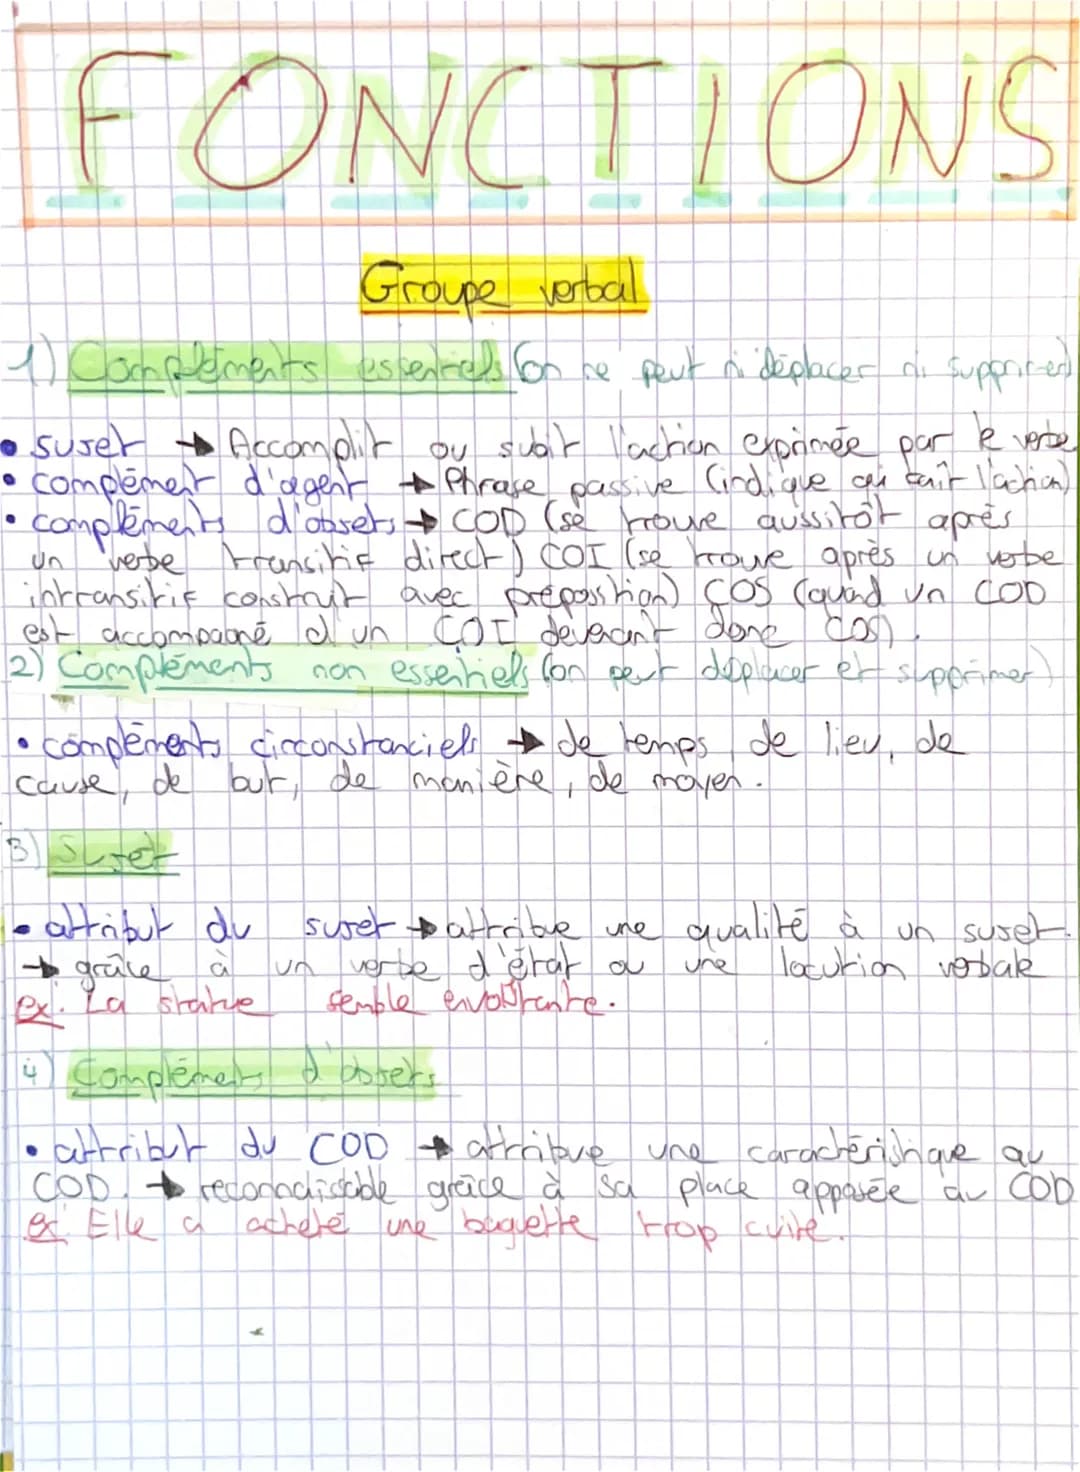 FONCTIONS
Groupe verbal
1) Compléments essentiels (on ne peut ni déplacer ni supprimer)
• sujet → Accomplit ou subit l'action exprimée par le verbe
• complément d'agent → Phrase passive (indique qui fait l'action)
• compléments d'objets → COD (se trouve aussitôt après
un verbe transitif direct) COI (se trouve après un verbe
intransitif construit avec préposition) COS (quand un COD
est accompagné d'un COI devenant donc COS).
2) Compléments non essentiels (on peut déplacer et supprimer)
• compléments circonstanciels → de temps, de lieu, de
cause, de but, de manière, de moyen.
3) Sujet
• attribut du sujet → attribue une qualité à un sujet.
→ grâce à un verbe d'état ou une locution verbale
ex: La statue semble envoûtante.
4) Compléments d'objets
• attribut du COD → attribue une caractéristique au
COD. → reconnaissable grâce à sa place apposée au COD
ex: Elle a acheté une baguette trop cuite.